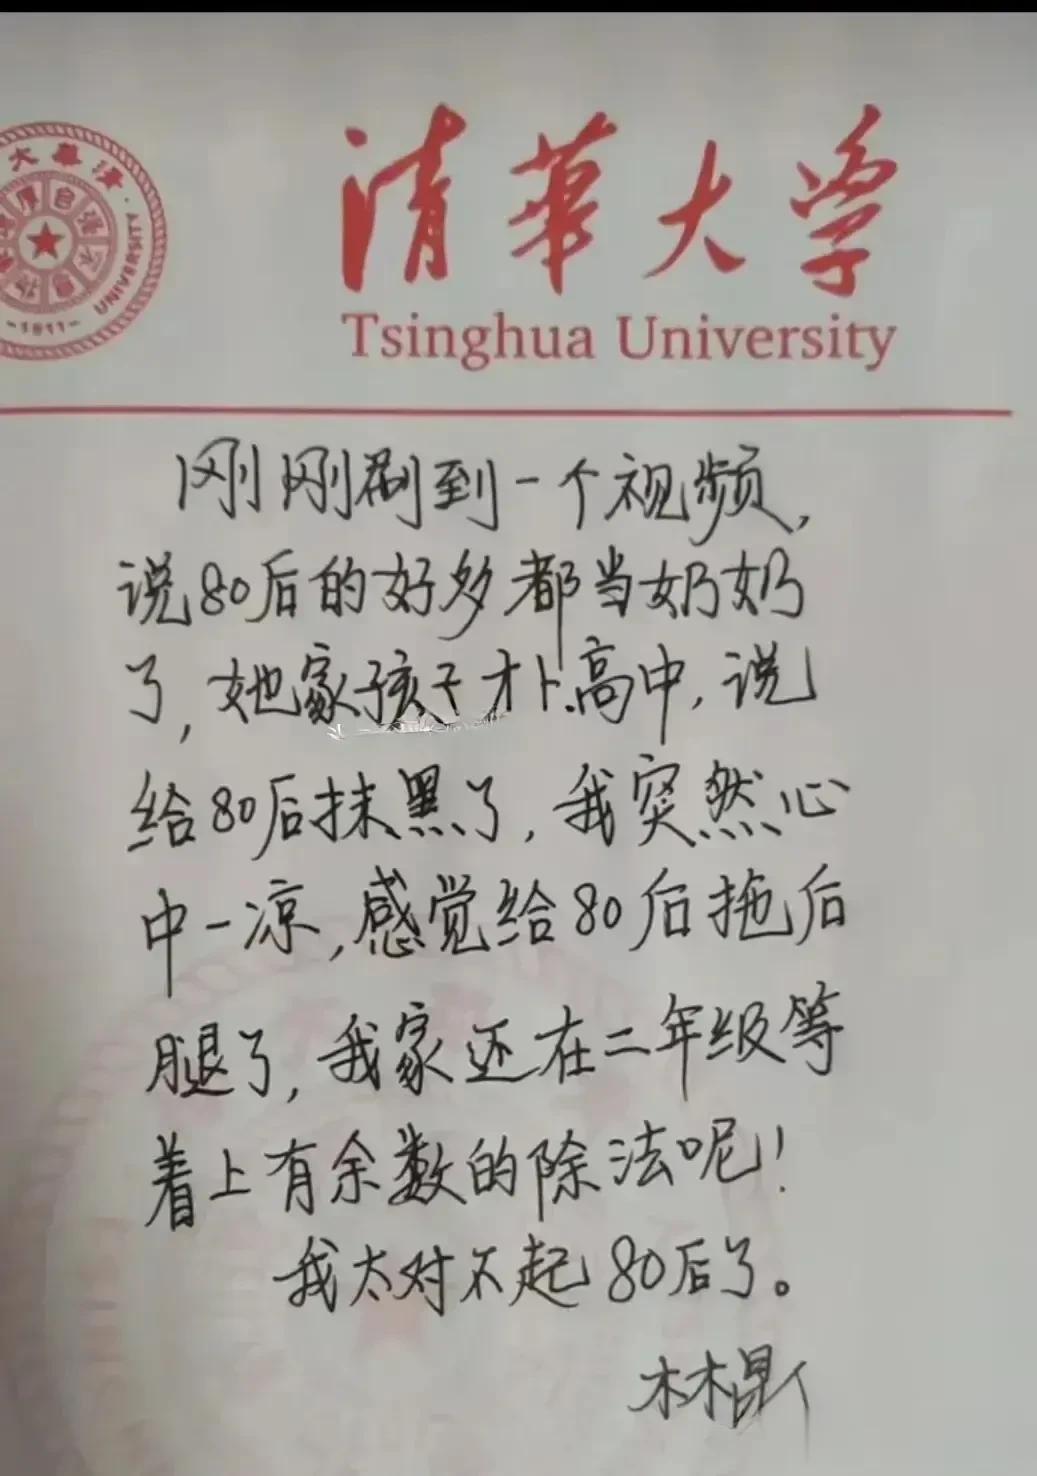 清華大学
Tsinghua University
大華清
UNIVERSITY
-1911-
刚刚刷到一个视频,
说80后的好多都当奶奶
了,她家孩子才上高中,说
给80后抹黑了,我突然心
中一凉,感觉给80后拖后
腿了,我家还在二年级等
着上有余数的除法呢!
我太对不起80后了。